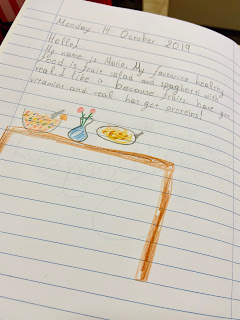 Monday 14 October 2019
Hello!
My name is Maria. My favourite
food is fruit salad and spaghetti with
veal. I like it because fruits have got
vitamins and veal has got proteins!